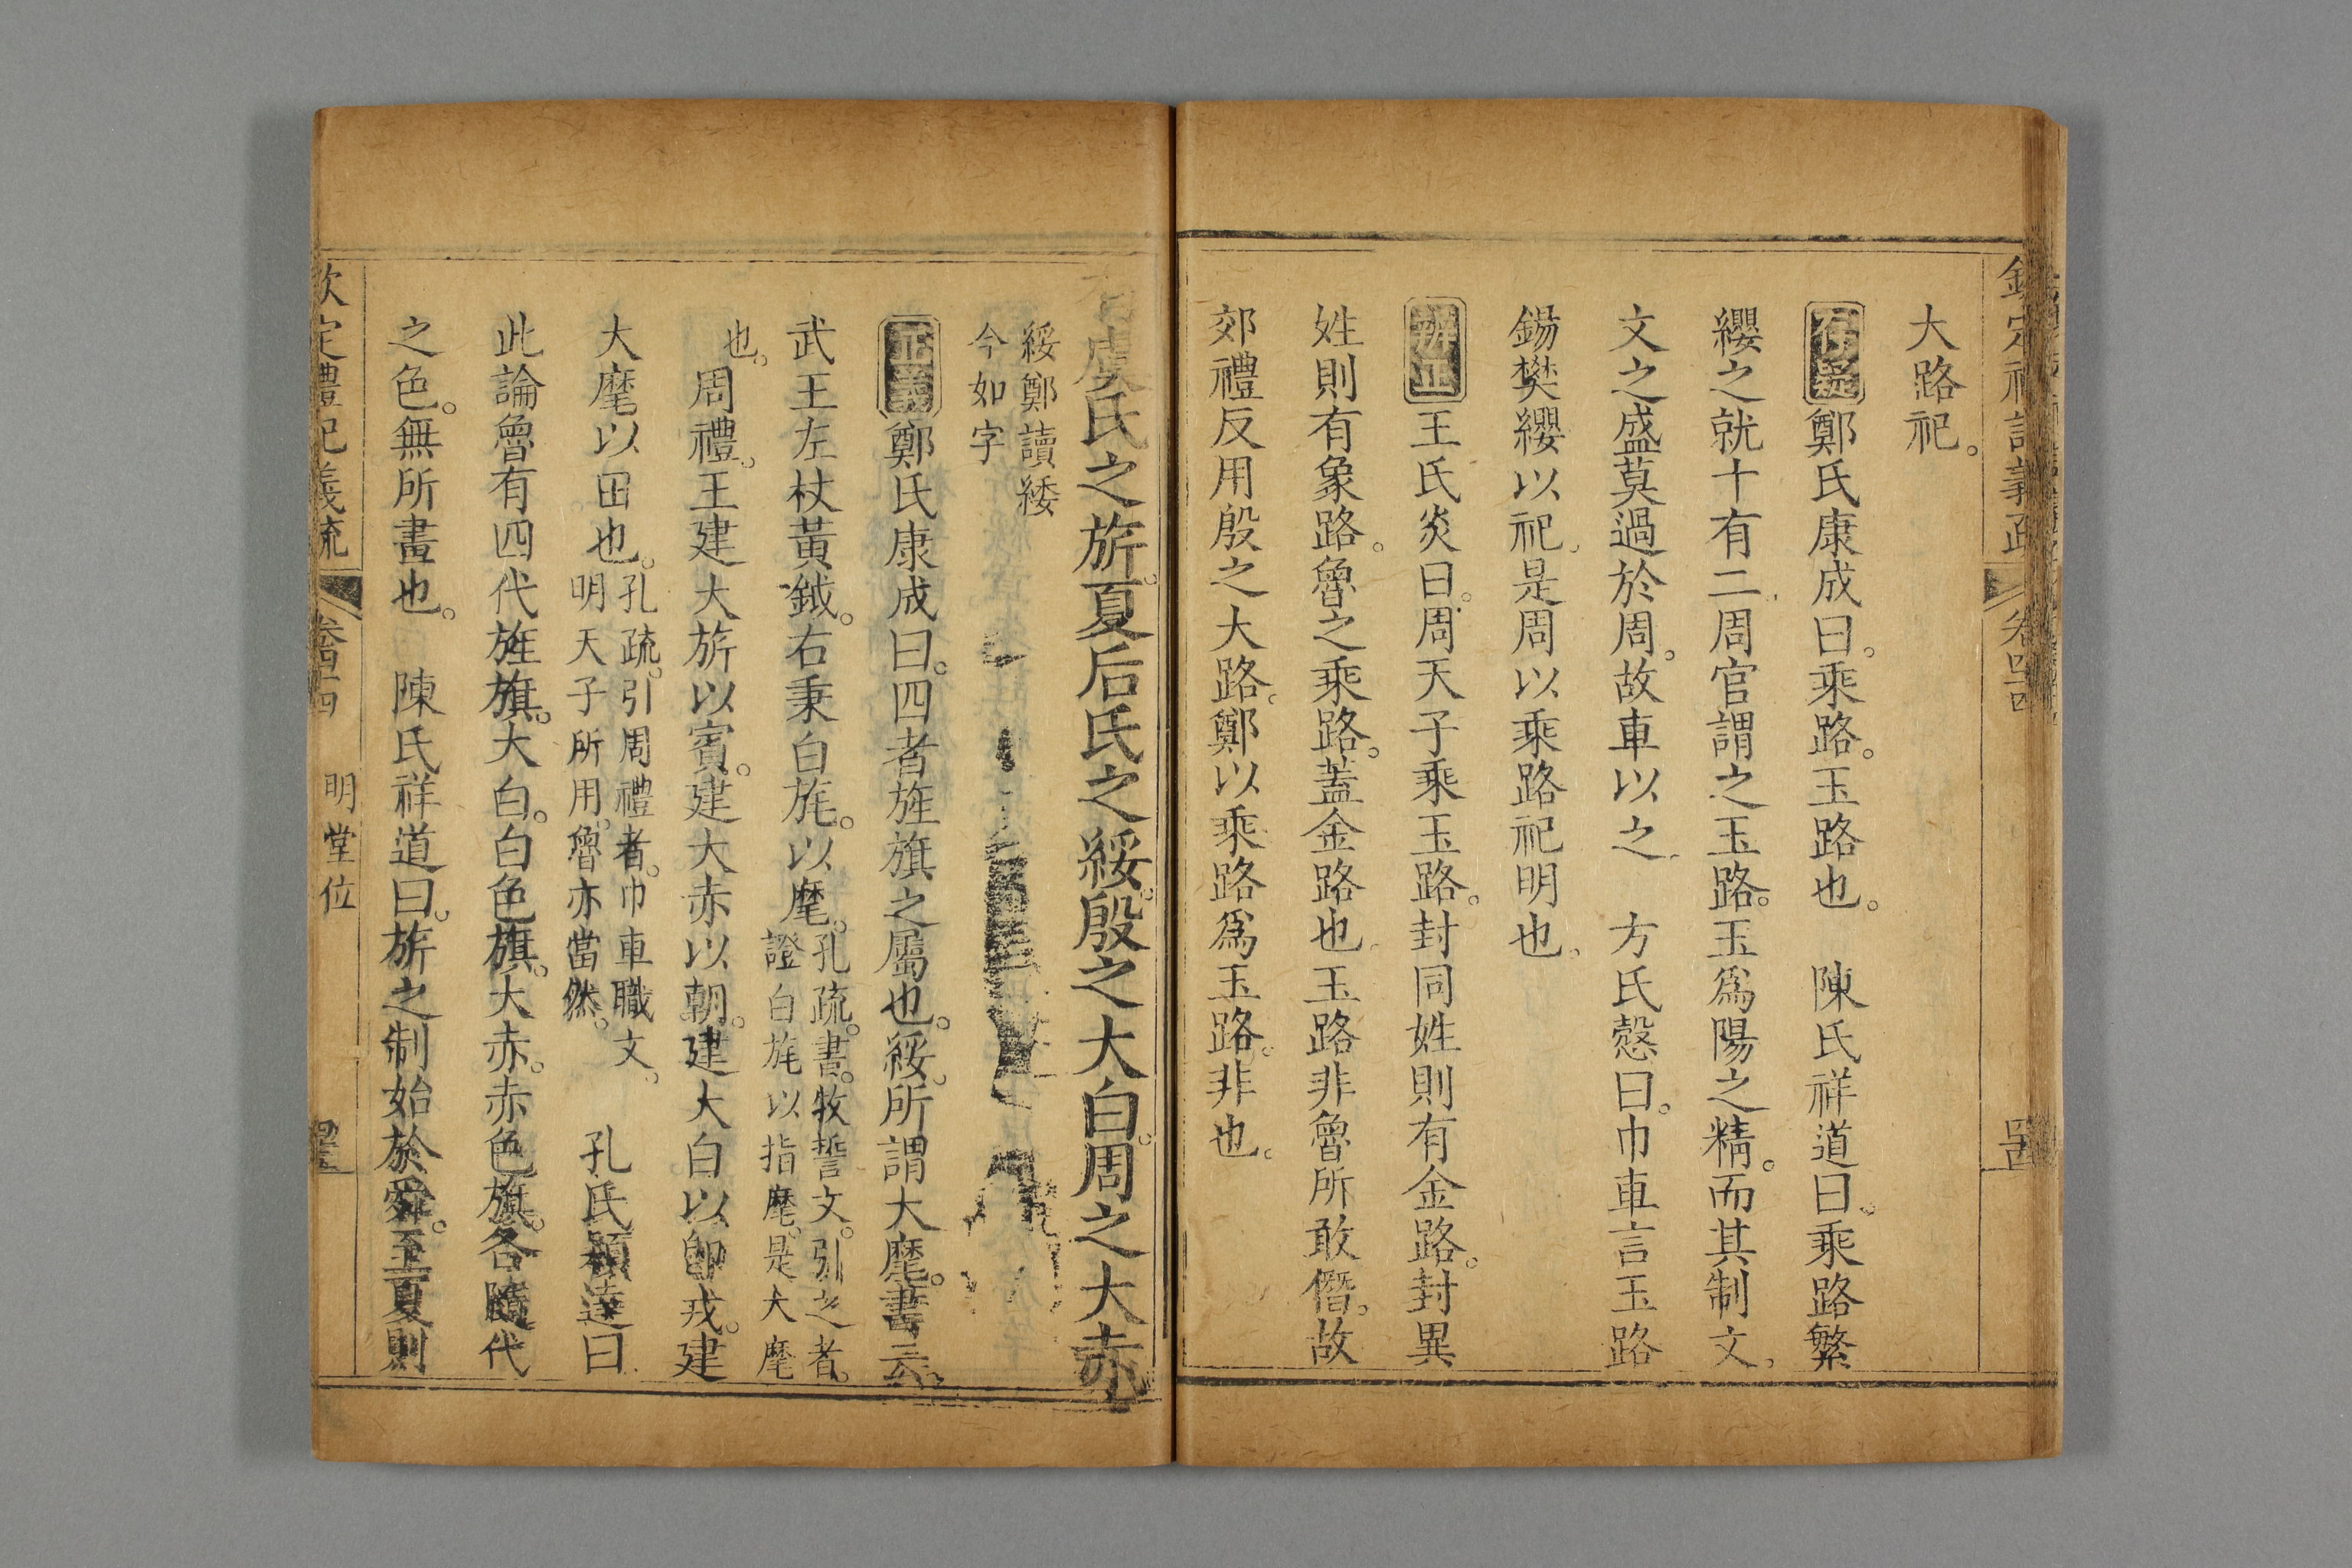 大路祀。
存疑鄭氏康成曰。乘路。玉路也。　陳氏祥道曰。乘路繁
纓之就十有二、周官謂之玉路。玉爲陽之精。而其制文、
文之盛莫過於周。故車以之、　方氏慤曰。巾車言玉路
鍚樊纓以祀、是周以乘路祀明也、
辨正王氏炎曰。周天子乘玉路。封同姓則有金路。封異
姓則有象路。魯之乘路。蓋金路也、玉路非魯所敢僭。故
郊禮反用殷之大路。鄭以乘路爲玉路。非也。
有虞氏之旂。夏后氏之綏。殷之大白。周之大赤
綏鄭讀緌
今如字
正義鄭氏康成曰。四者旌旗之屬也。綏、所謂大麾。書云。
武王左杖黃鉞。右秉白旄。以麾。
孔疏。書。牧誓文。引之者。
證白旄以指麾。是大麾
也。周禮。王建大旂以賓。建大赤以朝。建大白以卽戎。建
大麾以田也。
孔疏。引周禮者。巾車職文、
明天子所用。魯亦當然。
孔氏穎達曰、
此論魯有四代旌旗。大白。白色旗。大赤。赤色旗。各隨代
之色。無所畫也。　陳氏祥道曰、旂之制始於舜。至夏則
欽定禮記義疏
卷四十四
明堂位